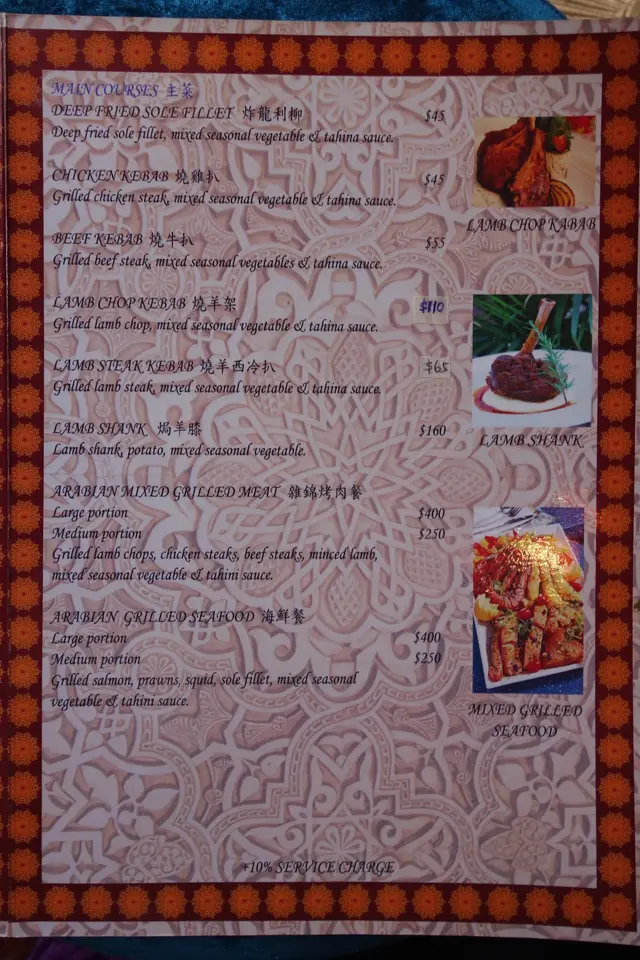 MAIN COURSES 主菜
DEEP FRIED SOLE FILLET 炸龍利柳 $45
Deep fried sole fillet, mixed seasonal vegetable & tahina sauce.
CHICKEN KEBAB 燒雞扒 $45
Grilled chicken steak, mixed seasonal vegetable & tahina sauce.
LAMB CHOP KABAB
BEEF KEBAB 燒牛扒 $55
Grilled beef steak, mixed seasonal vegetables & tahina sauce.
LAMB CHOP KEBAB 燒羊架 $110
Grilled lamb chop, mixed seasonal vegetable & tahina sauce.
LAMB STEAK KEBAB 燒羊西冷扒 $65
Grilled lamb steak, mixed seasonal vegetable & tahina sauce.
LAMB SHANK 焗羊膝 $160
LAMB SHANK
Lamb shank, potato, mixed seasonal vegetable.
ARABIAN MIXED GRILLED MEAT 雜錦烤肉餐
Large portion $400
Medium portion $250
Grilled lamb chops, chicken steaks, beef steaks, minced lamb,
mixed seasonal vegetable & tahini sauce.
ARABIAN GRILLED SEAFOOD 海鮮餐
Large portion $400
Medium portion $250
Grilled salmon, prawns, squid, sole fillet, mixed seasonal
vegetable & tahini sauce.
MIXED GRILLED
SEAFOOD
+10% SERVICE CHARGE